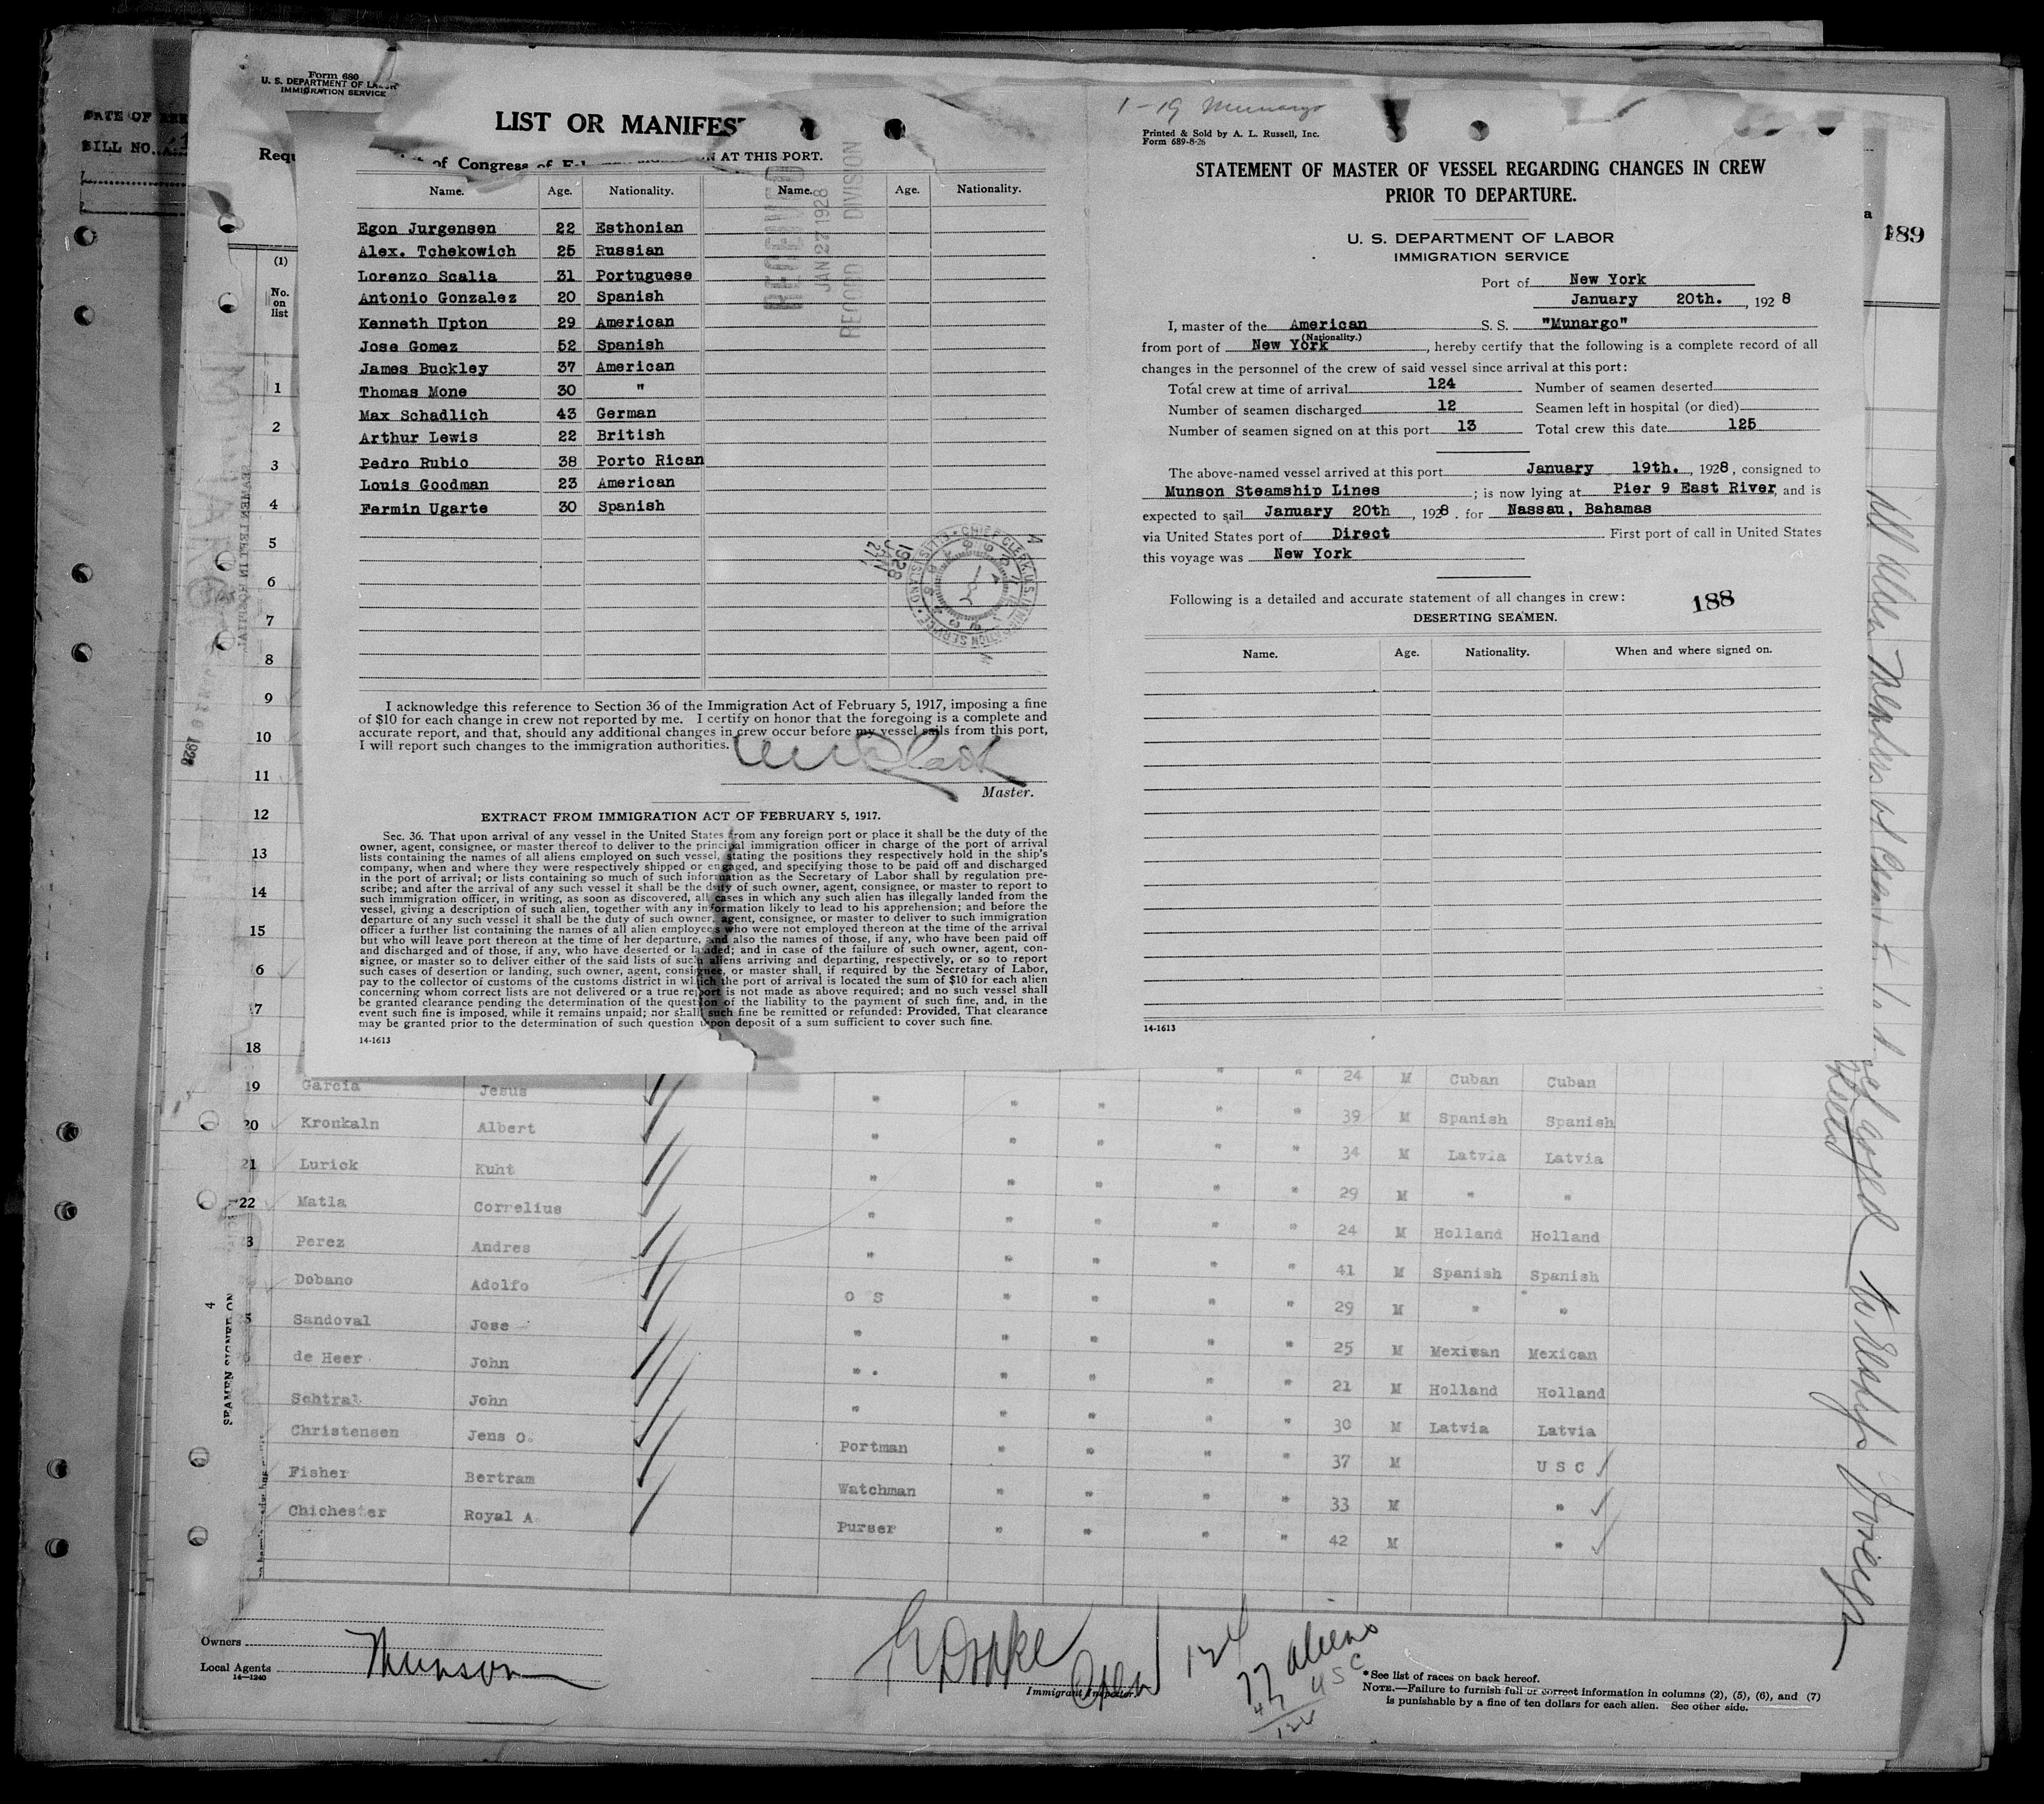 DATE OF
BILL NO.
Form 680
U. S. DEPARTMENT OF LABOR
IMMIGRATION SERVICE
LIST OR MANIFES
of Congress of
AT THIS PORT.
Name. Age. Nationality. Name. Age. Nationality.
Egon Jurgensen 22 Esthonian
Alex. Tchekowich 25 Russian
Lorenzo Scalia 31 Portuguese
Antonio Gonzalez 20 Spanish
Kenneth Upton 29 American
Jose Gomez 52 Spanish
James Buckley 37 American
Thomas Mone 30 "
Max Schadlich 43 German
Arthur Lewis 22 British
Pedro Rubio 38 Porto Rican
Louis Goodman 23 American
Fermin Ugarte 30 Spanish
RECEIVED
JAN 27 1928
RECORD DIVISION
I acknowledge this reference to Section 36 of the Immigration Act of February 5, 1917, imposing a fine
of $10 for each change in crew not reported by me. I certify on honor that the foregoing is a complete and
accurate report, and that, should any additional changes in crew occur before my vessel sails from this port,
I will report such changes to the immigration authorities.
Master.
EXTRACT FROM IMMIGRATION ACT OF FEBRUARY 5, 1917.
Sec. 36. That upon arrival of any vessel in the United States from any foreign port or place it shall be the duty of the
owner, agent, consignee, or master thereof to deliver to the principal immigration officer in charge of the port of arrival
lists containing the names of all aliens employed on such vessel, stating the positions they respectively hold in the ship's
company, when and where they were respectively shipped or engaged, and specifying those to be paid off and discharged
in the port of arrival; or lists containing so much of such information as the Secretary of Labor shall by regulation pre-
scribe; and after the arrival of any such vessel it shall be the duty of such owner, agent, consignee, or master to report to
such immigration officer, in writing, as soon as discovered, all cases in which any such alien has illegally landed from the
vessel, giving a description of such alien, together with any information likely to lead to his apprehension; and before the
departure of any such vessel it shall be the duty of such owner, agent, consignee, or master to deliver to such immigration
officer a further list containing the names of all alien employees who were not employed thereon at the time of the arrival
but who will leave port thereon at the time of her departure, and also the names of those, if any, who have been paid off
and discharged and of those, if any, who have deserted or landed; and in case of the failure of such owner, agent, con-
signee, or master so to deliver either of the said lists of such aliens arriving and departing, respectively, or so to report
such cases of desertion or landing, such owner, agent, consignee, or master shall, if required by the Secretary of Labor,
pay to the collector of customs of the customs district in which the port of arrival is located the sum of $10 for each alien
concerning whom correct lists are not delivered or a true report is not made as above required; and no such vessel shall
be granted clearance pending the determination of the question of the liability to the payment of such fine, and, in the
event such fine is imposed, while it remains unpaid; nor shall such fine be remitted or refunded: Provided, That clearance
may be granted prior to the determination of such question upon deposit of a sum sufficient to cover such fine.
14-1613
1-19 Munargo
Printed & Sold by A. L. Russell, Inc.
Form 689-8-26
STATEMENT OF MASTER OF VESSEL REGARDING CHANGES IN CREW
PRIOR TO DEPARTURE.
U. S. DEPARTMENT OF LABOR
IMMIGRATION SERVICE
Port of New York
January 20th., 1928
I, master of the American S. S. "Munargo"
(Nationality.)
from port of New York, hereby certify that the following is a complete record of all
changes in the personnel of the crew of said vessel since arrival at this port:
Total crew at time of arrival 124 Number of seamen deserted
Number of seamen discharged 12 Seamen left in hospital (or died)
Number of seamen signed on at this port 13 Total crew this date 125
The above-named vessel arrived at this port January 19th., 1928, consigned to
Munson Steamship Lines; is now lying at Pier 9 East River, and is
expected to sail January 20th, 1928. for Nassau, Bahamas
via United States port of Direct First port of call in United States
this voyage was New York
Following is a detailed and accurate statement of all changes in crew: 188
DESERTING SEAMEN.
Name. Age. Nationality. When and where signed on.
14-1613
189
(1)
No.
on
list
1
2
3
4
5
6
7
8
9
10
11
12
13
14
15
6
17
18
19 Garcia Jesus " " " " " 24 M Cuban Cuban
20 Kronkaln Albert " " " " " 39 M Spanish Spanish
21 Lurick Kuht " " " " " 34 M Latvia Latvia
22 Matla Correlius " " " " " 29 M " "
3 Perez Andres " " " " " 24 M Holland Holland
Dobano Adolfo O S " " " " 41 M Spanish Spanish
5 Sandoval Jose " " " " " 29 M " "
de Heer John " " " " " 25 M Mexican Mexican
Schtral John " " " " " 21 M Holland Holland
Christensen Jens O. Portman " " " " 30 M Latvia Latvia
Fisher Bertram Watchman " " " " 37 M U S C
Chichester Royal A Purser " " " " 33 M "
42 M "
SEAMEN SIGNED ON
4
Owners
Local Agents Munson
14-1240
Immigrant Inspector.
124
77 aliens
47 USC
124
*See list of races on back hereof.
NOTE.—Failure to furnish full or correct information in columns (2), (5), (6), and (7)
is punishable by a fine of ten dollars for each alien. See other side.